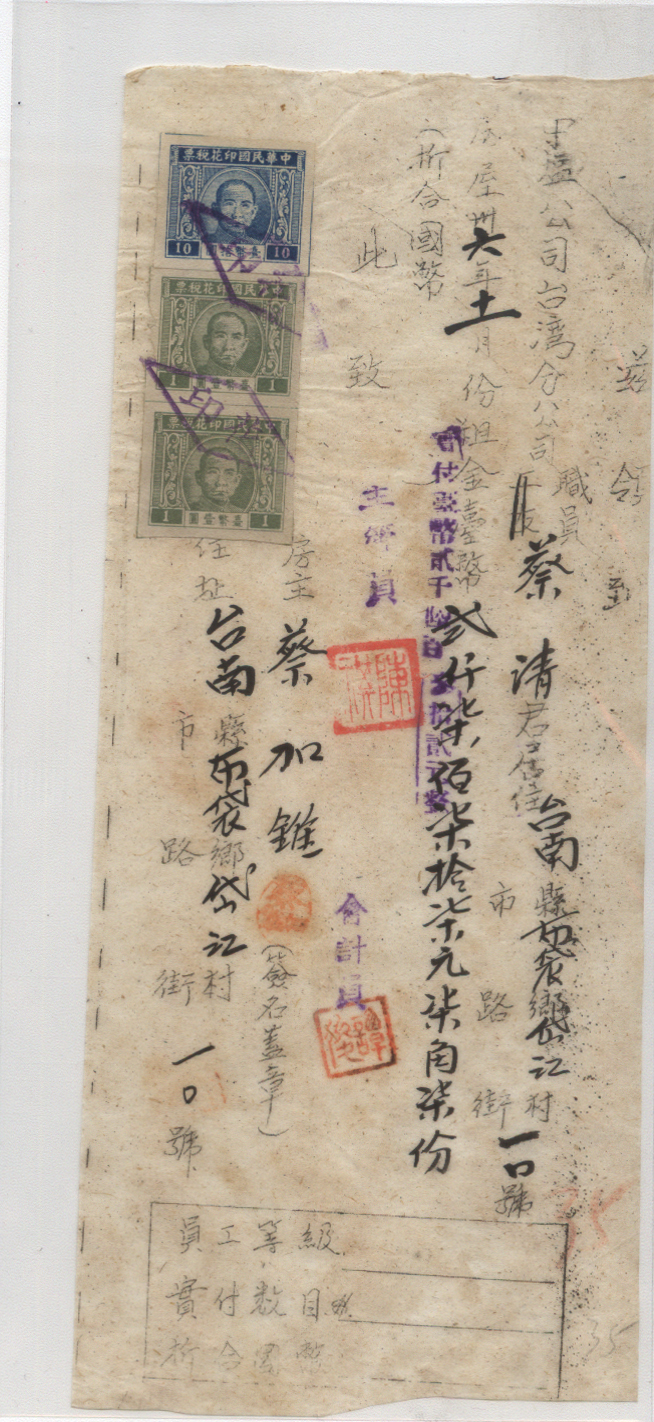 茲領到
中鹽公司台湾分公司職員蔡清君居住台南縣市布袋鄉路岱江村街一〇號
房屋卅六年十一月份租金臺幣貳仟柒佰柒拾柒元柒角柒份
(折合國幣
此致
主管員
會計員
房主蔡加錐(簽名蓋章)
住址台南縣市布袋鄉路岱江村街一〇號
中華民國印花稅票
10
10
中華民國印花稅票
1
臺幣壹圓
1
中華民國印花稅票
1
臺幣壹圓
1
員工等級
實付數目
折合國幣
35